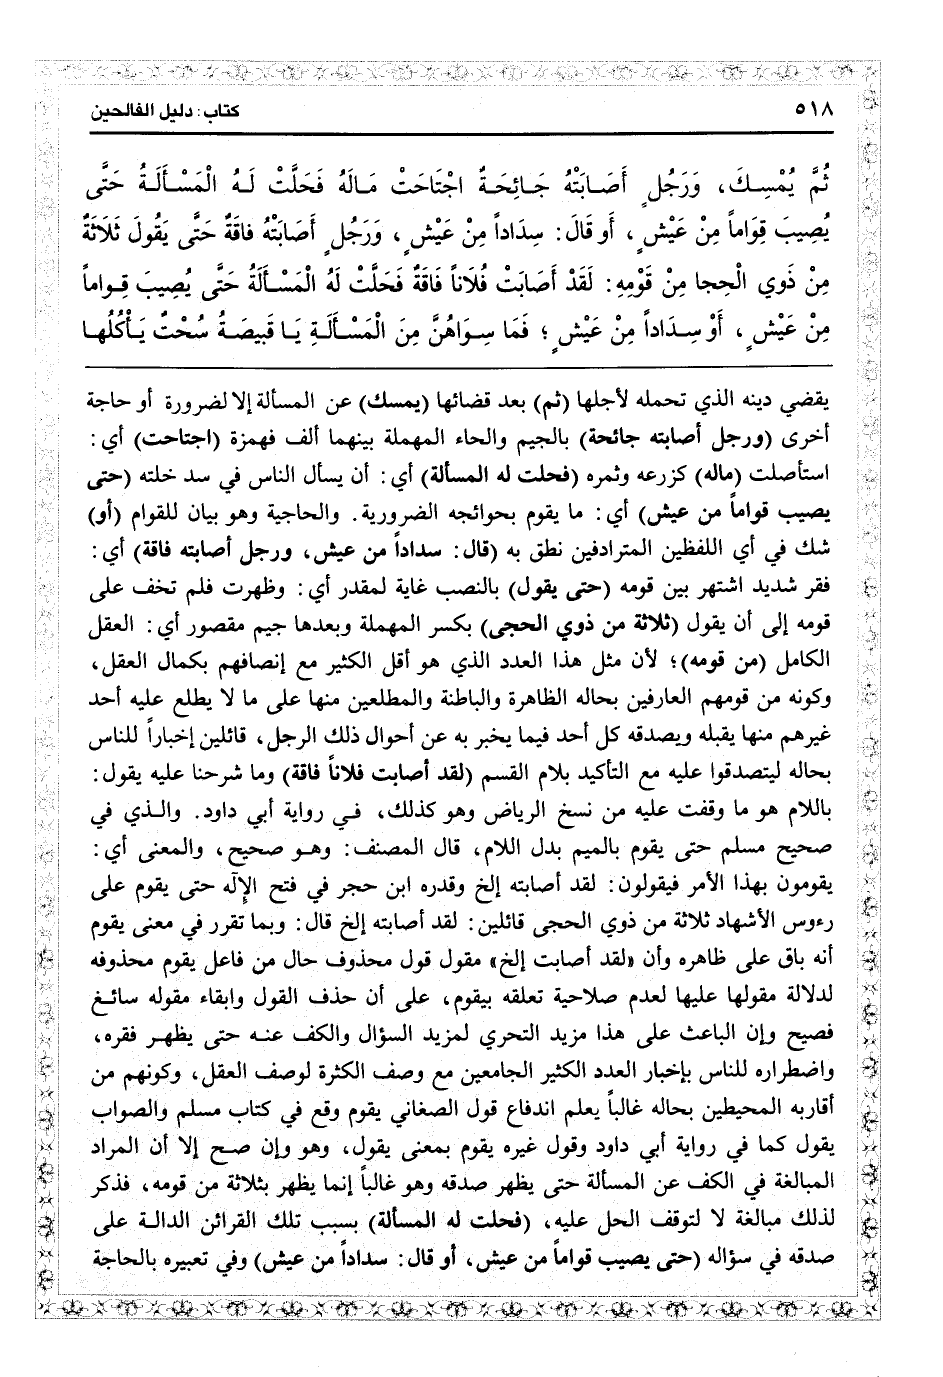 ٥١٨
كتاب : دليل الفالحين
ثُمَّ يُمْسِكَ، وَرَجُلٍ أَصَابَتْهُ جَائِحَةٌ اجْتَاحَتْ مَالَهُ فَحَلَّتْ لَهُ الْمَسْأَلَةُ حَتَّى
يُصِيبَ قِوَاماً مِنْ عَيْشٍ ، أَو قَالَ: سِدَاداً مِنْ عَيْشٍ ، وَرَجُلٍ أَصَابَتْهُ فَاقَةٌ حَتَّى يَقُولَ ثَلَاثَةٌ
مِنْ ذَوِي الْحِجا مِنْ قَوْمِهِ: لَقَدْ أَصَابَتْ فُلَاناً فَاقَةٌ فَحَلَّتْ لَهُ الْمَسْأَلَةُ حَتَّى يُصِيبَ قِواماً
مِنْ عَيْشٍ ، أَوْ سِدَاداً مِنْ عَيْشٍ ؛ فَمَا سِوَاهُنَّ مِنَ الْمَسْأَلَةِ يَا قَبِيصَةُ سُحْتٌ يَأْكُلُها
يقضي دينه الذي تحمله لأجلها (ثم) بعد قضائها (يمسك) عن المسألة إلا لضرورة أو حاجة
أخرى (ورجل أصابته جائحة) بالجيم والحاء المهملة بينهما ألف فهمزة (اجتاحت) أي:
استأصلت (ماله) كزرعه وثمره (فحلت له المسألة) أي: أن يسأل الناس في سد خلته (حتى
يصيب قواماً من عيش) أي: ما يقوم بحوائجه الضرورية. والحاجية وهو بيان للقوام (أو)
شك في أي اللفظين المترادفين نطق به (قال: سداداً من عيش، ورجل أصابته فاقة) أي:
فقر شديد اشتهر بين قومه (حتى يقول) بالنصب غاية لمقدر أي: وظهرت فلم تخف على
قومه إلى أن يقول (ثلاثة من ذوي الحجى) بكسر المهملة وبعدها جيم مقصور أي: العقل
الكامل (من قومه)؛ لأن مثل هذا العدد الذي هو أقل الكثير مع إنصافهم بكمال العقل،
وكونه من قومهم العارفين بحاله الظاهرة والباطنة والمطلعين منها على ما لا يطلع عليه أحد
غيرهم منها يقبله ويصدقه كل أحد فيما يخبر به عن أحوال ذلك الرجل، قائلين إخباراً للناس
بحاله ليتصدقوا عليه مع التأكيد بلام القسم (لقد أصابت فلاناً فاقة) وما شرحنا عليه يقول:
باللام هو ما وقفت عليه من نسخ الرياض وهو كذلك، في رواية أبي داود. والذي في
صحيح مسلم حتى يقوم بالميم بدل اللام، قال المصنف: وهو صحيح، والمعنى أي:
يقومون بهذا الأمر فيقولون: لقد أصابته إلخ وقدره ابن حجر في فتح الإله حتى يقوم على
رءوس الأشهاد ثلاثة من ذوي الحجى قائلين: لقد أصابته إلخ قال: وبما تقرر في معنى يقوم
أنه باق على ظاهره وأن «لقد أصابت إلخ» مقول قول محذوف حال من فاعل يقوم محذوفه
لدلالة مقولها عليها لعدم صلاحية تعلقه بيقوم، على أن حذف القول وابقاء مقوله سائغ
فصيح وإن الباعث على هذا مزيد التحري لمزيد السؤال والكف عنه حتى يظهر فقره،
واضطراره للناس بإخبار العدد الكثير الجامعين مع وصف الكثرة لوصف العقل، وكونهم من
أقاربه المحيطين بحاله غالباً يعلم اندفاع قول الصغاني يقوم وقع في كتاب مسلم والصواب
يقول كما في رواية أبي داود وقول غيره يقوم بمعنى يقول، وهو وإن صح إلا أن المراد
المبالغة في الكف عن المسألة حتى يظهر صدقه وهو غالباً إنما يظهر بثلاثة من قومه، فذكر
لذلك مبالغة لا لتوقف الحل عليه، (فحلت له المسألة) بسبب تلك القرائن الدالة على
صدقه في سؤاله (حتى يصيب قواماً من عيش، أو قال: سداداً من عيش) وفي تعبيره بالحاجة